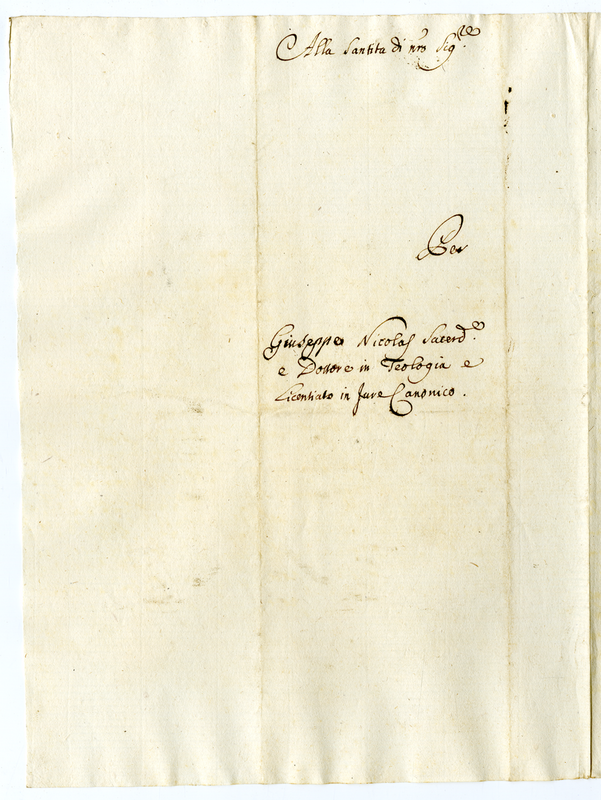 Alla Santita di nro Sig.re
Per
Giuseppe Nicolas Sacerd.e
e Dottore in Teologia e
Licentiato in Jure Canonico.